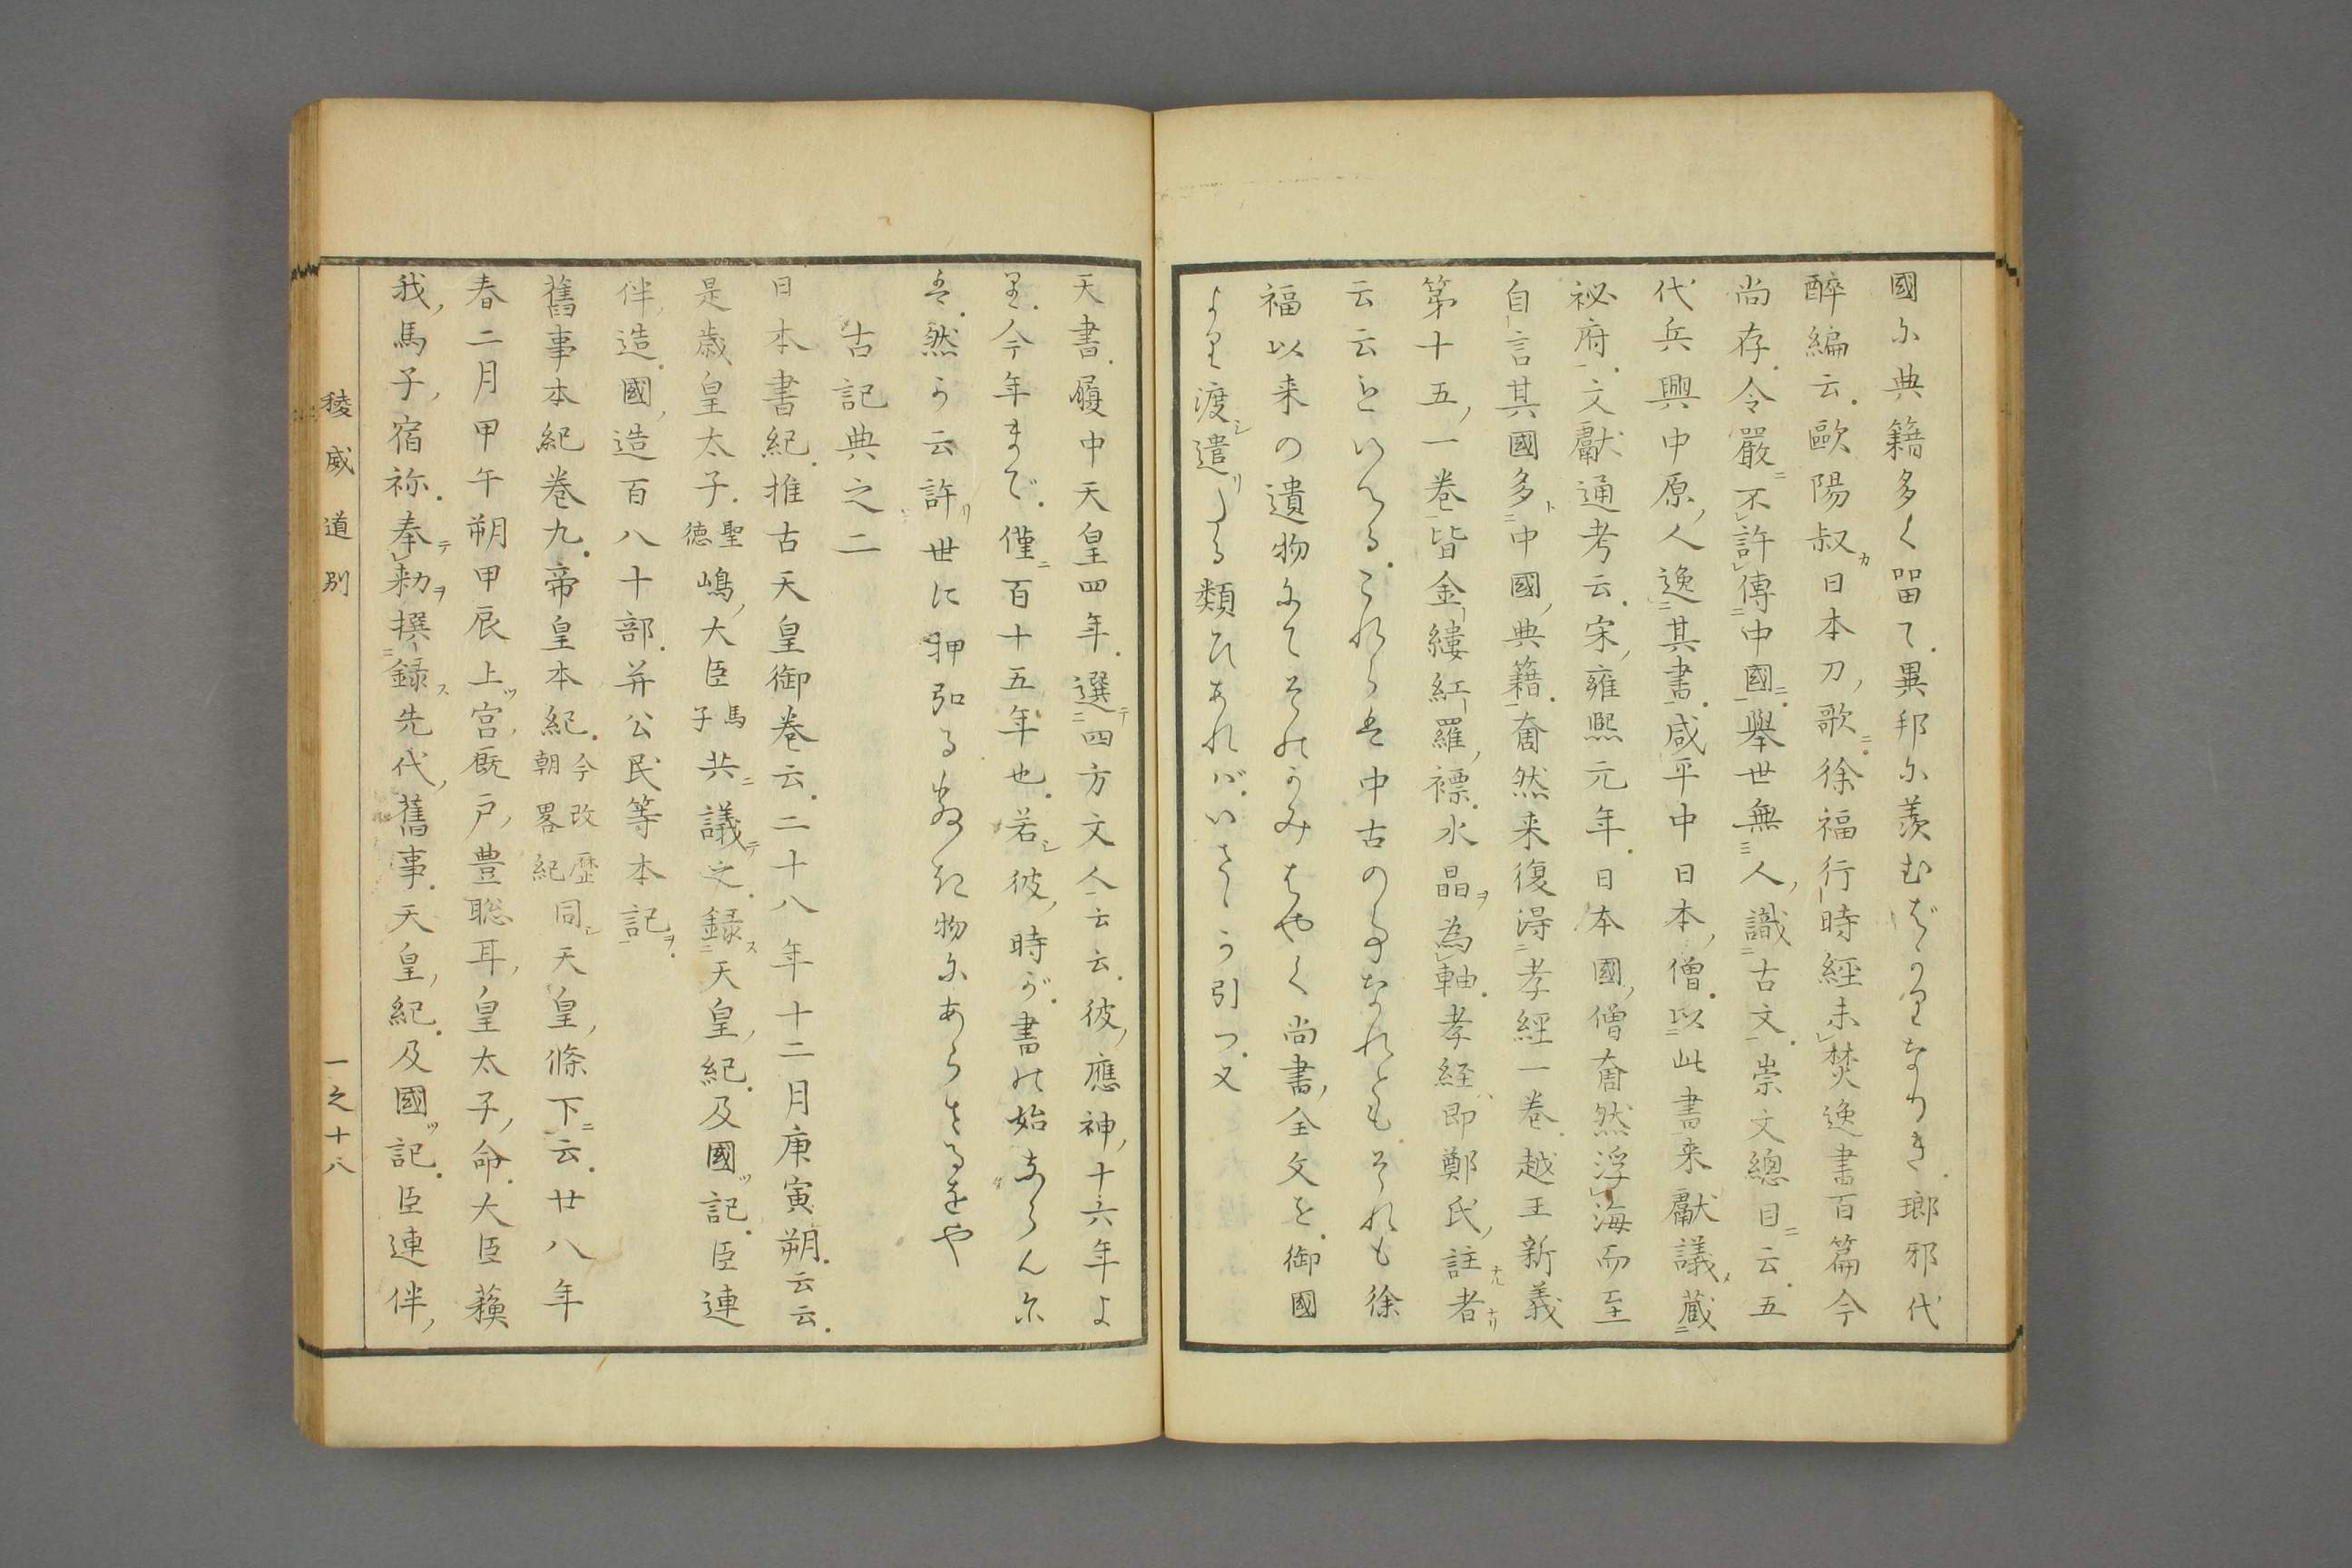 國尓典籍多く畱て異邦尓羨むばかりなりき瑯邪代
醉編云歐陽叔カ日本刀歌ニ徐福行時經未焚逸書百篇今
尚存令嚴ニ不許傳中國ニ舉世無人識古文崇文總目ニ云五
代兵興中原人逸其書咸平中日本僧以此書来獻議メ藏
祕府文獻通考云宋雍熙元年日本國僧奝然浮海而至
自言其國多ト中國典籍奝然来復得孝經一巻越王新義
第十五一巻皆金縷紅羅褾水晶ヲ為軸孝経ハ即鄭氏註ナル者ナリ
云云といへるこれらは中古の事なれどもそれも徐
福以来の遺物にてそのかみはやく尚書全文を御國
より渡シ遣リたる類ひあれバいさゝか引つ又
天書履中天皇四年選テ四方文人云云彼應神十六年よ
り今年まで僅ニ百十五年也若シ彼時が書の始ならんに
は然か云許リ世に狎弘るべき物にあらざるをや
古記典之二
日本書紀推古天皇御巻云二十八年十二月庚寅朔云云
是歳皇太子聖徳嶋大臣馬子共ニ議テ之録ス天皇紀及國ツ記臣連
伴造國造百八十部并公民等本記ヲ
舊事本紀巻九帝皇本紀今改歴朝畧紀同シ天皇條下ニ云廿八年
春二月甲午朔甲辰上ツ宮厩戸豊聡耳皇太子命大臣蘓
我馬子宿祢奉テ勅ヲ撰録ス先代舊事天皇紀及國ツ記臣連伴
稜威道別 一之十八